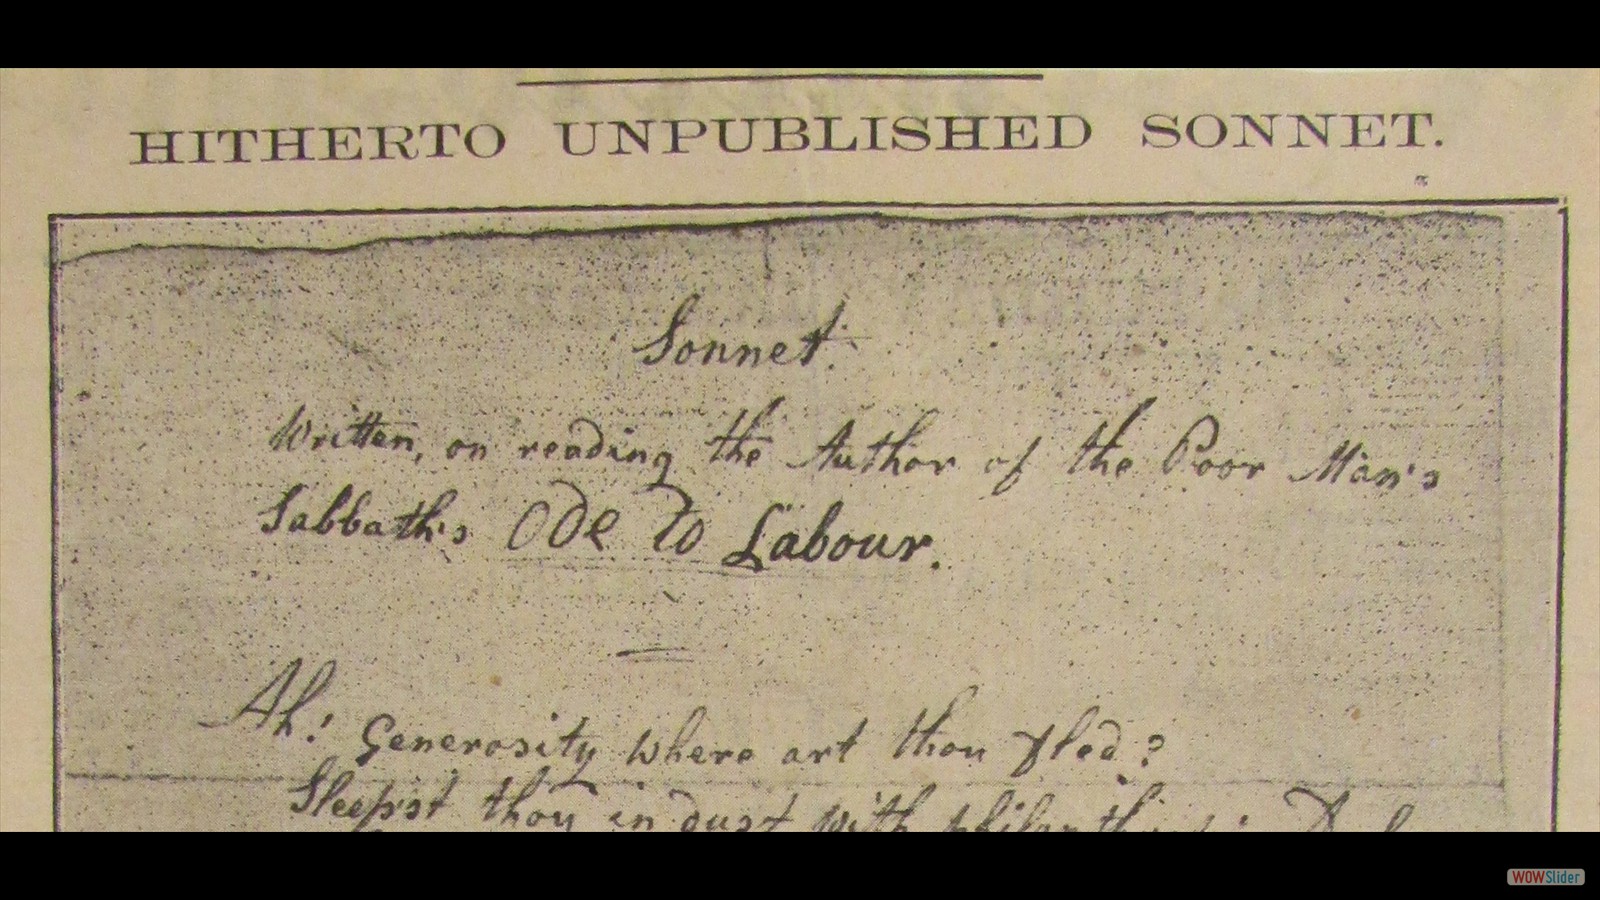 HITHERTO UNPUBLISHED SONNET.
Sonnet.
Written, on reading the Author of the Poor Man's
Sabbath's Ode to Labour.
Ah! Generosity where art thou fled?
Sleep'st thou in dust with
WOWSlider